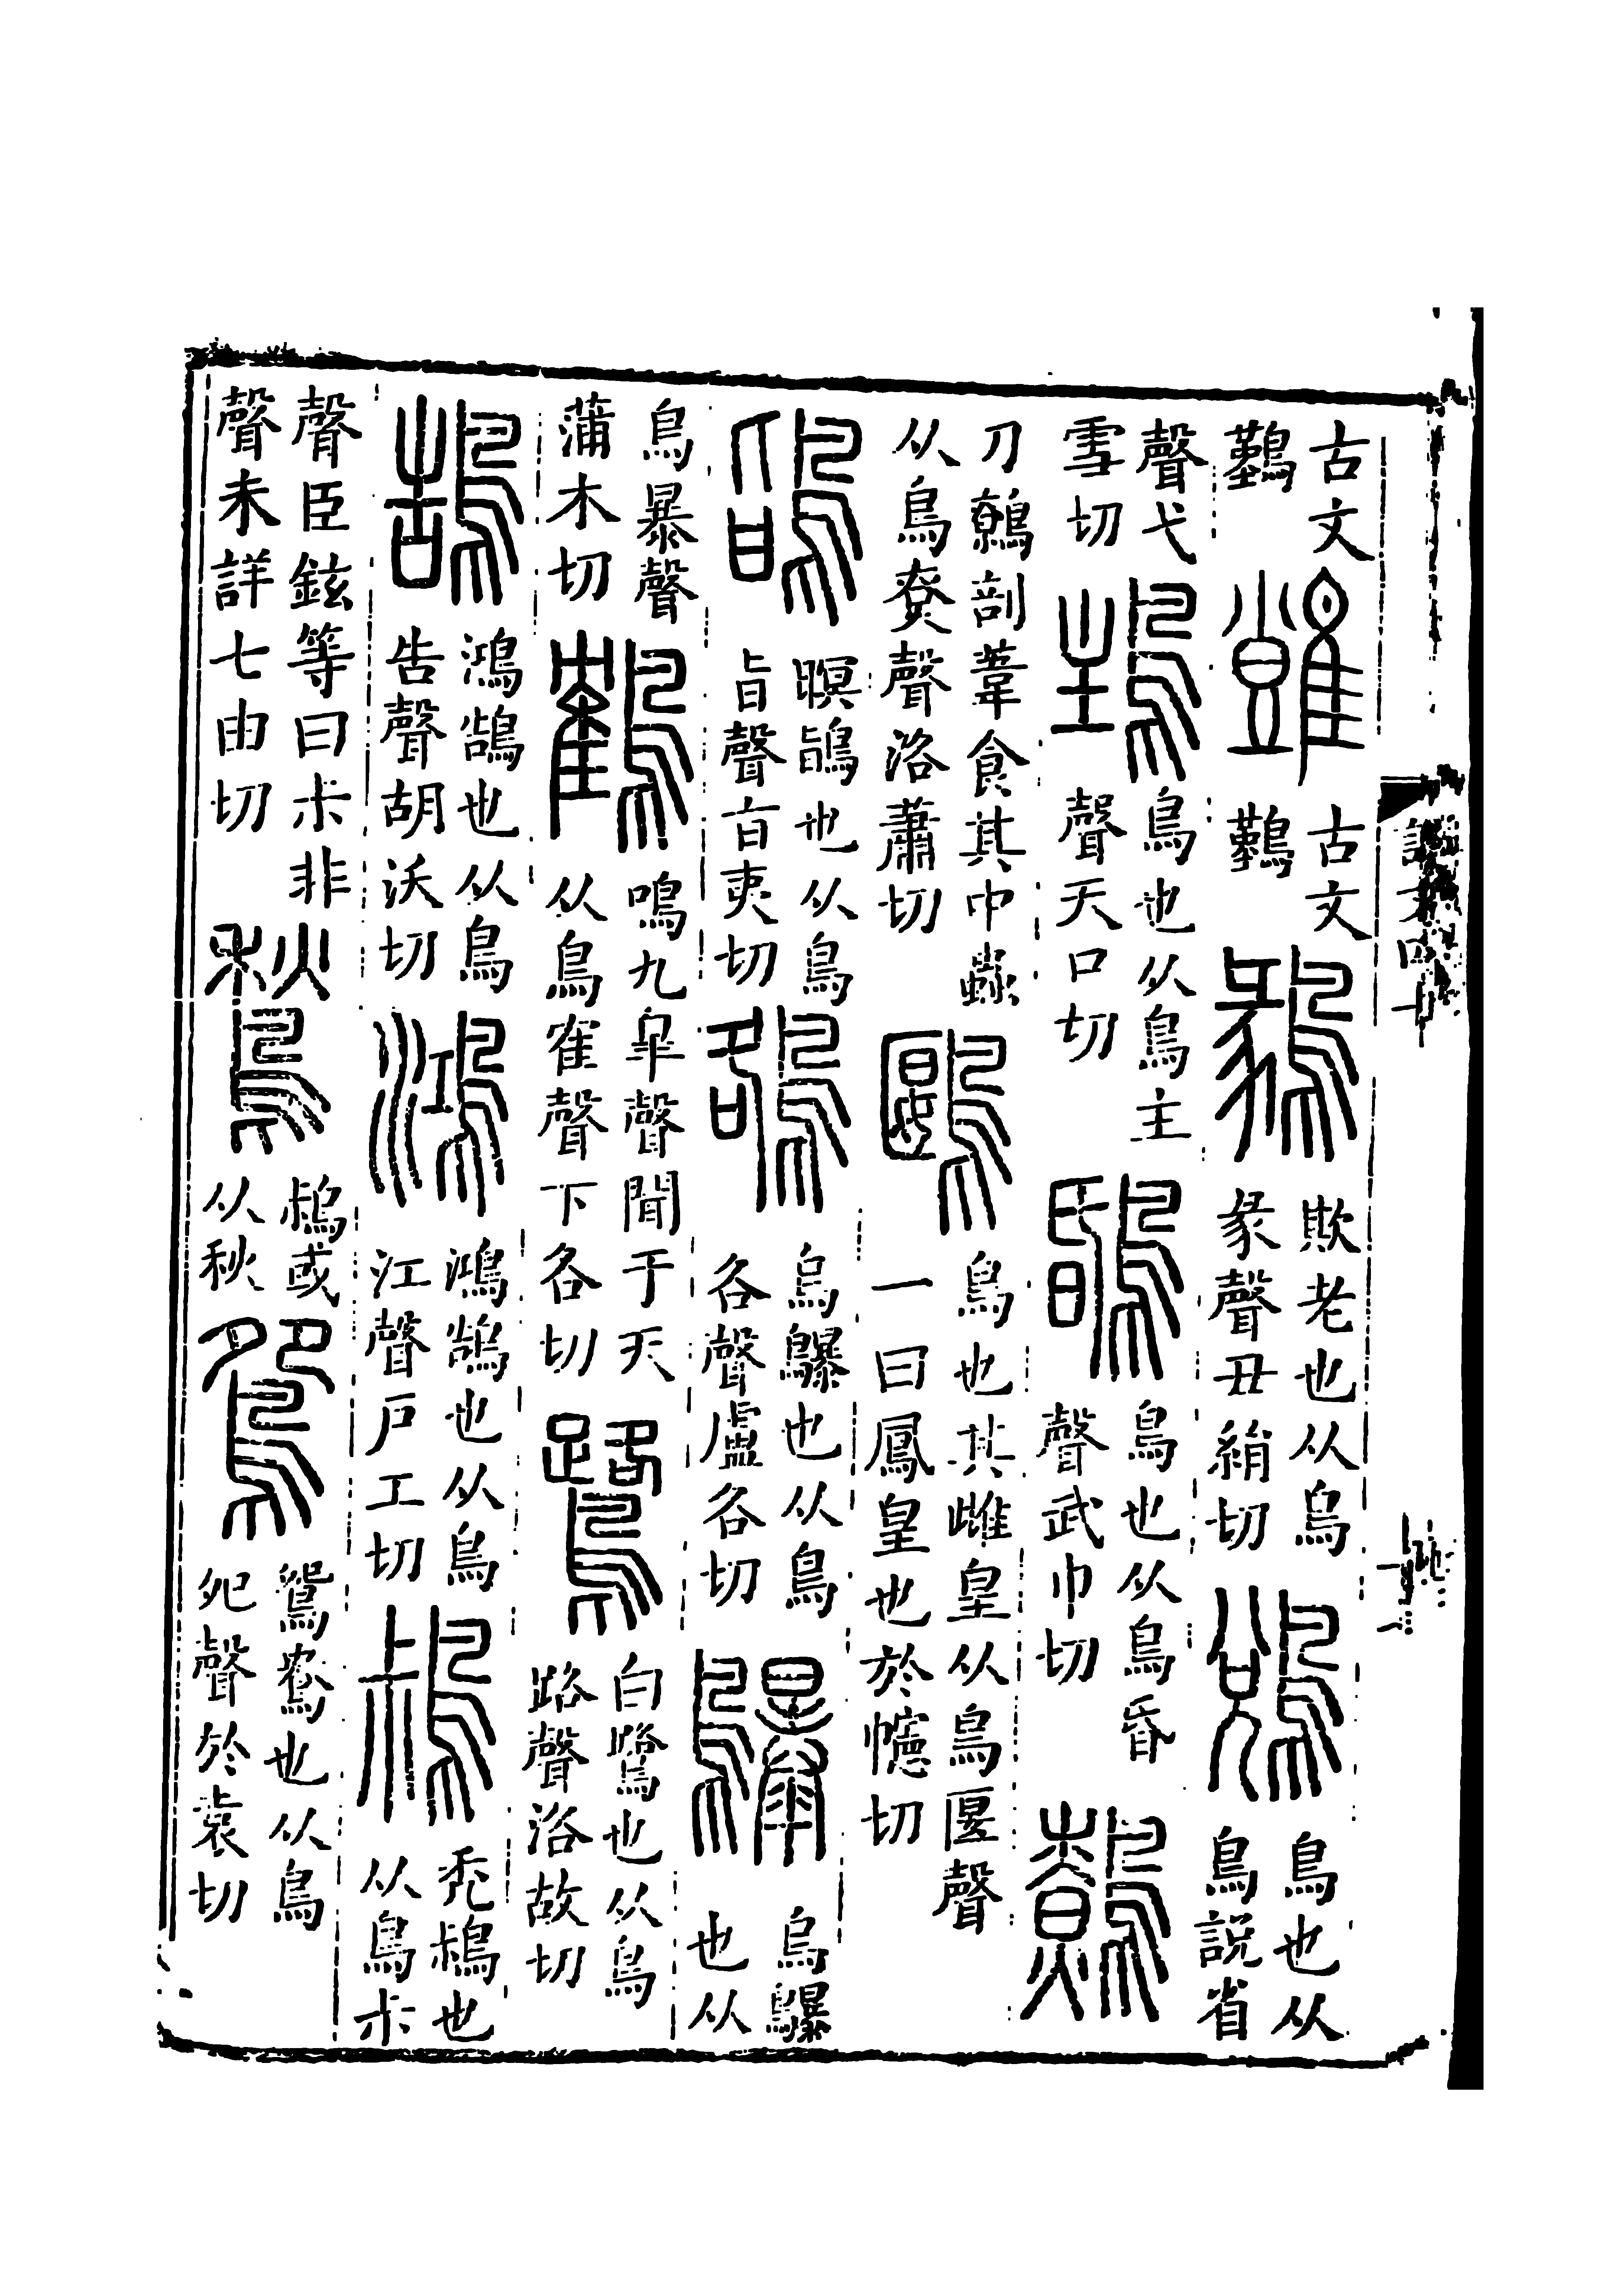 古文𪄿 古文𪄿 鶨 欺老也从鳥彖聲丑絹切 鳥也从鳥說省
聲弋雪切 鳥也从鳥主聲天口切 鳥也从鳥昏聲武巾切 鷯
刀鷯剖葦食其中蟲从鳥尞聲洛蕭切 鶠 鳥也其雌皇从鳥匽聲一曰鳳皇也於幰切
鴲 瞑鴲也从鳥旨聲旨夷切 鵅 烏鸔也从鳥各聲盧各切 鸔 烏鸔也从
鳥暴聲蒲木切 鶴 鳴九皋聲聞于天从鳥隺聲下各切 鷺 白鷺也从鳥路聲洛故切
鵠 鴻鵠也从鳥告聲胡沃切 鴻 鴻鵠也从鳥江聲戶工切 禿也从鳥尗
聲臣鉉等曰尗非聲未詳七由切 鶖 或从秋 鴛 鴛鴦也从鳥夗聲於袁切